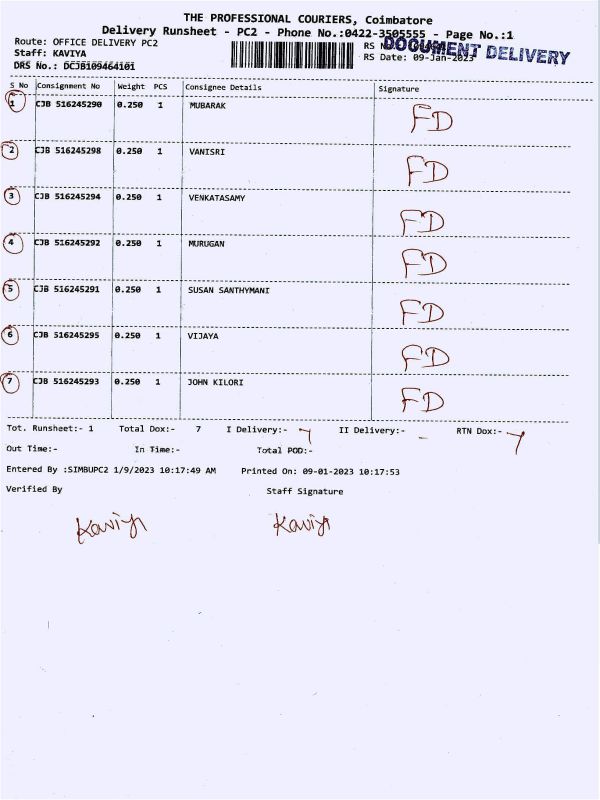 THE PROFESSIONAL COURIERS, Coimbatore
Delivery Runsheet - PC2 - Phone No.:0422-3505555 - Page No.:1
Route: OFFICE DELIVERY PC2
RS No
DOCUMENT DELIVERY
Staff: KAVIYA
RS Date: 09-Jan-2023
DRS No.: DCJB109464101
S No Consignment No Weight PCS Consignee Details Signature
1 CJB 516245290 0.250 1 MUBARAK FD
2 CJB 516245298 0.250 1 VANISRI FD
3 CJB 516245294 0.250 1 VENKATASAMY FD
4 CJB 516245292 0.250 1 MURUGAN FD
5 CJB 516245291 0.250 1 SUSAN SANTHYMANI FD
6 CJB 516245295 0.250 1 VIJAYA FD
7 CJB 516245293 0.250 1 JOHN KILORI FD
Tot. Runsheet:- 1 Total Dox:- 7 I Delivery:- 7 II Delivery:- - RTN Dox:- 7
Out Time:- In Time:- Total POD:-
Entered By :SIMBUPC2 1/9/2023 10:17:49 AM Printed On: 09-01-2023 10:17:53
Verified By Staff Signature
Kaviya Kaviya